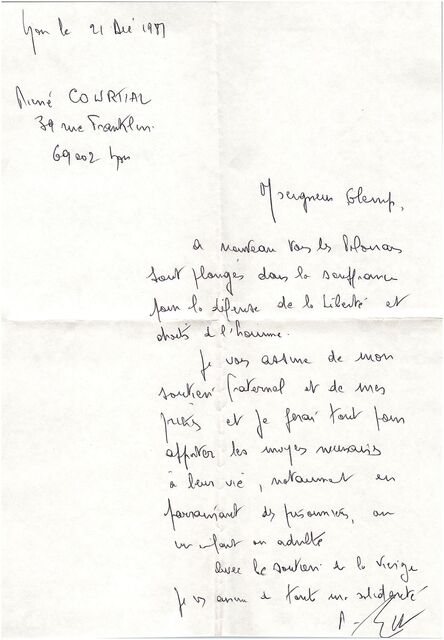 Lyon le 21 Déc 1981
Aimé COURTIAL
39 rue Franklin
69002 Lyon
Monseigneur Glemp,
à nouveau tous les Polonais
sont plongés dans la souffrance
pour la défense de la liberté et
droits de l'homme.
Je vous assure de mon
soutien fraternel et de mes
prières et je ferai tout pour
apporter les moyens nécessaires
à leur vie, notamment en
parrainant des prisonniers, ou
un enfant ou adulte
avec le soutien de la Vierge
Je vs assure de toute ma solidarité